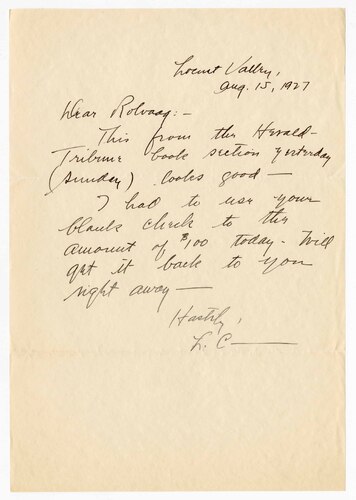 Locust Valley,
Aug. 15, 1927
Dear Rolvaag:-
This from the Herald-
Tribune book section yesterday
(Sunday) looks good —
I had to use your
blank check to the
amount of $100 today. Will
get it back to you
right away —
Hastily,
L. C —